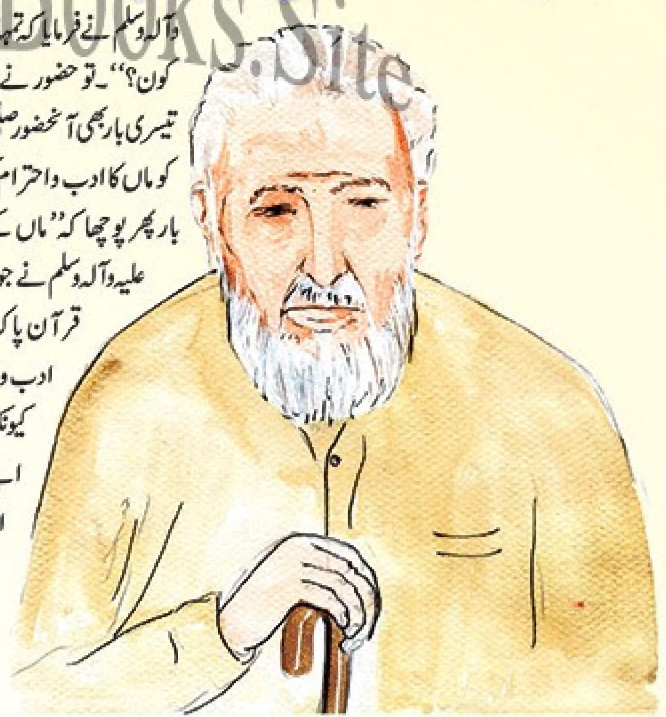 BOOKS.Site
وآلہ وسلم نے فرمایا کہ تمہ
کون؟‘‘۔ تو حضور نے
تیسری بار بھی آنحضور صل
کو ماں کا ادب و احترام ک
بار پھر پوچھا کہ ’’ماں کے
علیہ وآلہ وسلم نے جو
قرآن پاک
ادب و
کیونک
اے
ا